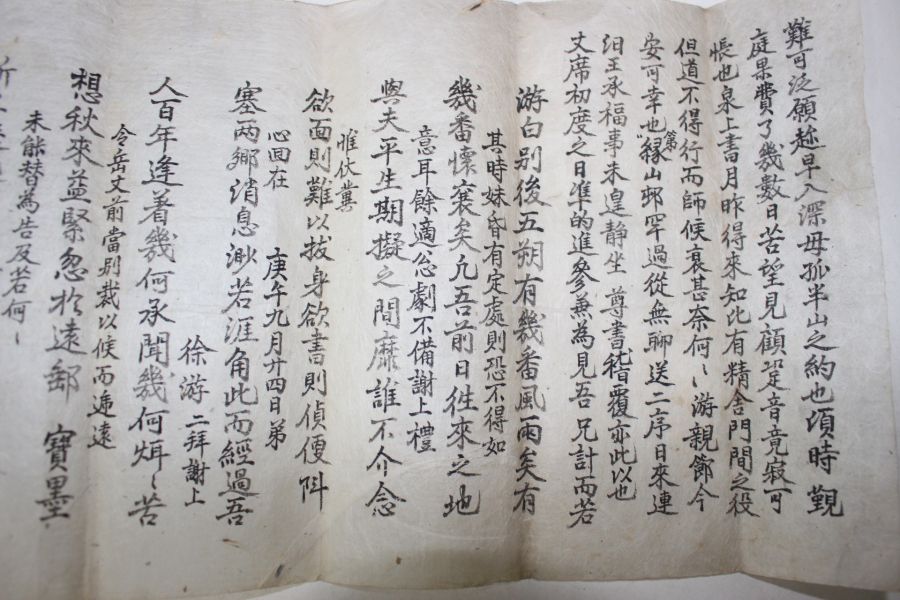 難可泛願趁早入深毋孤半山之約也頃時觀
庭果費了幾數日苦望見顧跫音竟寂可
悵也泉上書月昨得來知比有精舍門閭之役
但道不得行而師候衰甚奈何〻游親節今
安可幸也第緣山邨罕過從無聊送二序日來連
汨王承福事未遑靜坐 尊書嵇覆亦此以也
丈席初度之日準的進參兼為見吾 兄計而若
游白別後五朔有幾番風雨矣有
其時妹昏有定處則恐不得如
幾番懷襄矣凡吾前日往來之地
意耳餘適忩劇不備謝上禮
與夫平生期擬之間靡誰不介念
惟伏䔧
欲面則難以拔身欲書則偵便阧
心回在 庚午九月廿四日弟
塞兩鄉消息渺若涯角此而經過吾
徐游 二拜謝上
人百年逢着幾何承聞幾何烓〻苦
令岳丈前當別裁以候而遄遠
想秋來益緊忽於遠郵 寶墨
未能替為告及若何〻